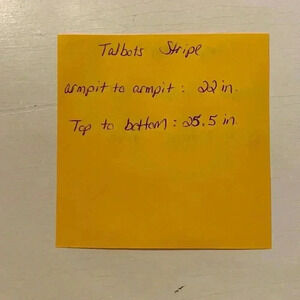 Talbots Stripe
armpit to armpit : 22 in.
Top to bottom : 25.5 in